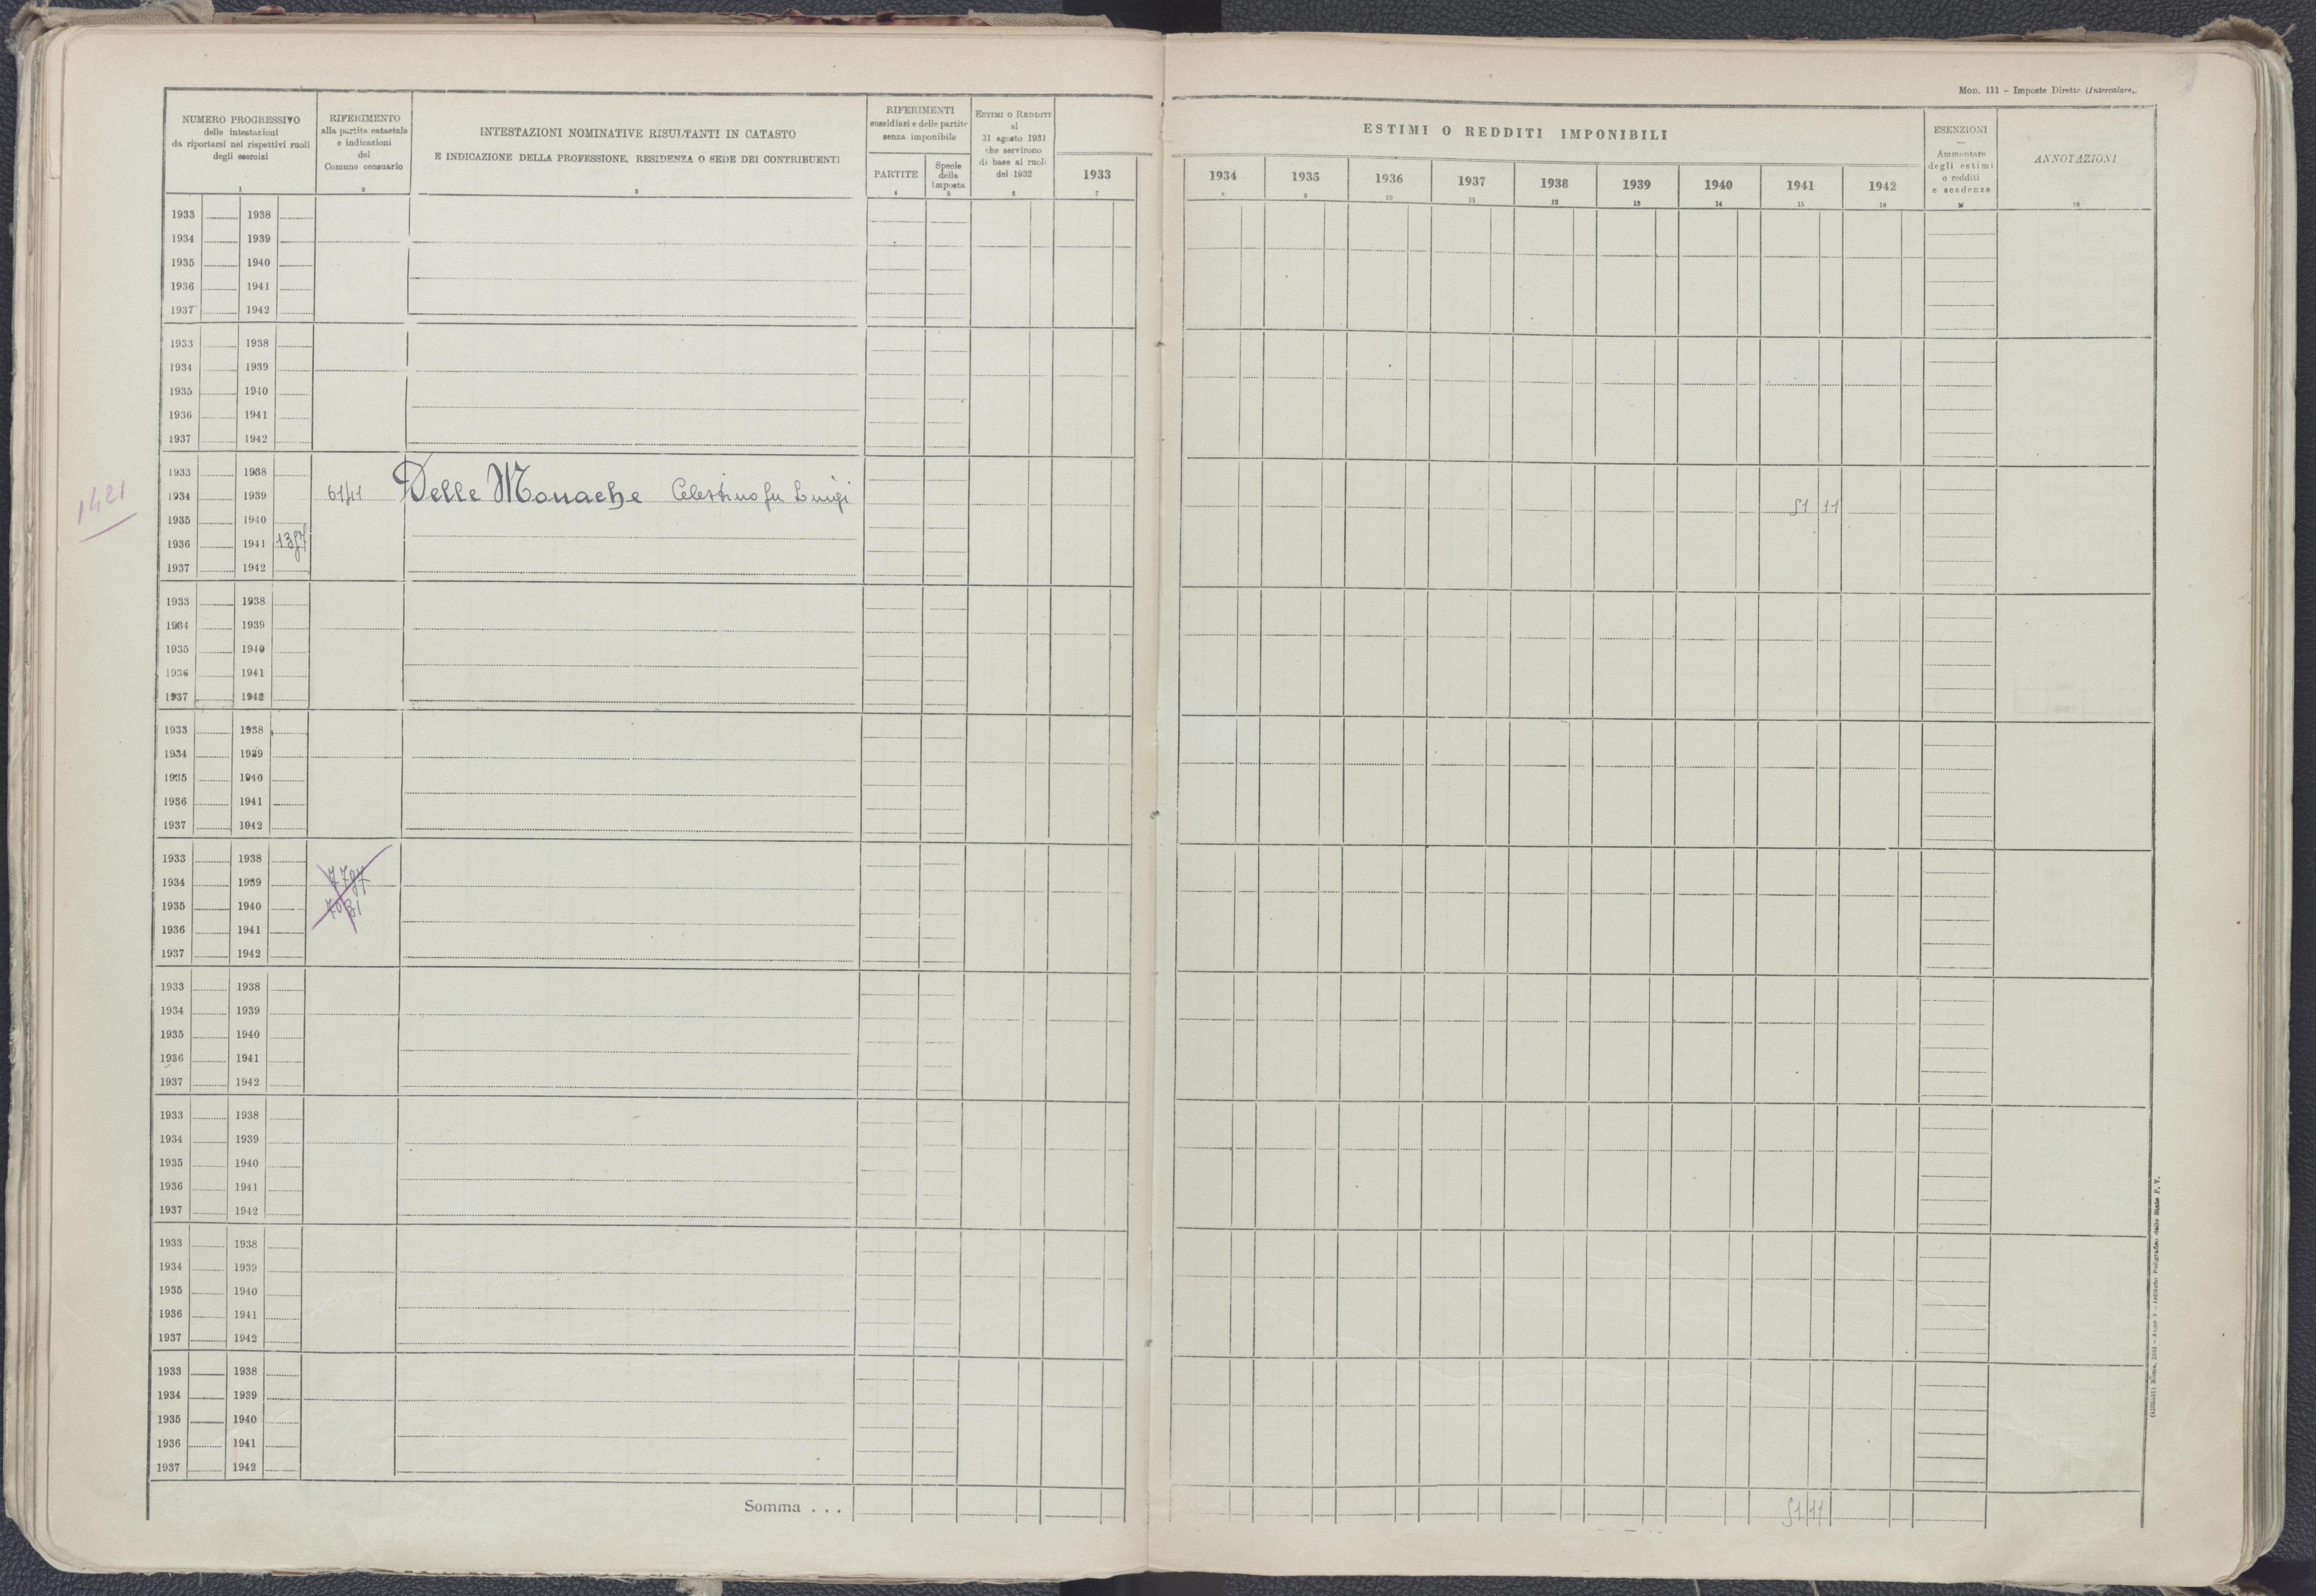 MOD. 111 – Imposte Dirette (Intercalare).
NUMERO PROGRESSIVO
delle intestazioni
da riportarsi nei rispettivi ruoli
degli esercizi
1
RIFERIMENTO
alla partita catastale
e indicazioni
del
Comune censuario
2
INTESTAZIONI NOMINATIVE RISULTANTI IN CATASTO
E INDICAZIONE DELLA PROFESSIONE, RESIDENZA O SEDE DEI CONTRIBUENTI
3
RIFERIMENTI
sussidiari e delle partite
senza imponibile
PARTITE
4
Specie
della
Imposta
5
ESTIMI O REDDITI
al
31 agosto 1931
che servirono
di base ai ruoli
del 1932
6
ESTIMI O REDDITI IMPONIBILI
1933 1934 1935 1936 1937 1938 1939 1940 1941 1942
7 8 9 10 11 12 13 14 15 16
ESENZIONI
—
Ammontare
degli estimi
o redditi
e scadenze
17
ANNOTAZIONI
18
1933 1938
1934 1939
1935 1940
1936 1941
1937 1942
1933 1938
1934 1939
1935 1940
1936 1941
1937 1942
1421
1933 1938
1934 1939 6141 Delle Monache Celestino fu Luigi 51 11
1935 1940
1936 1941 1357
1937 1942
1933 1938
1934 1939
1935 1940
1936 1941
1937 1942
1933 1938
1934 1939
1935 1940
1936 1941
1937 1942
1933 1938
1934 1939
1935 1940
1936 1941
1937 1942
1933 1938
1934 1939
1935 1940
1936 1941
1937 1942
1933 1938
1934 1939
1935 1940
1936 1941
1937 1942
1933 1938
1934 1939
1935 1940
1936 1941
1937 1942
1933 1938
1934 1939
1935 1940
1936 1941
1937 1942
Somma . . . 51 11